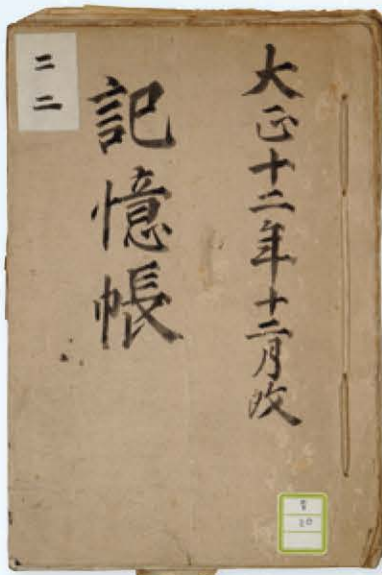 大正十二年十二月改
記憶帳
二二
20